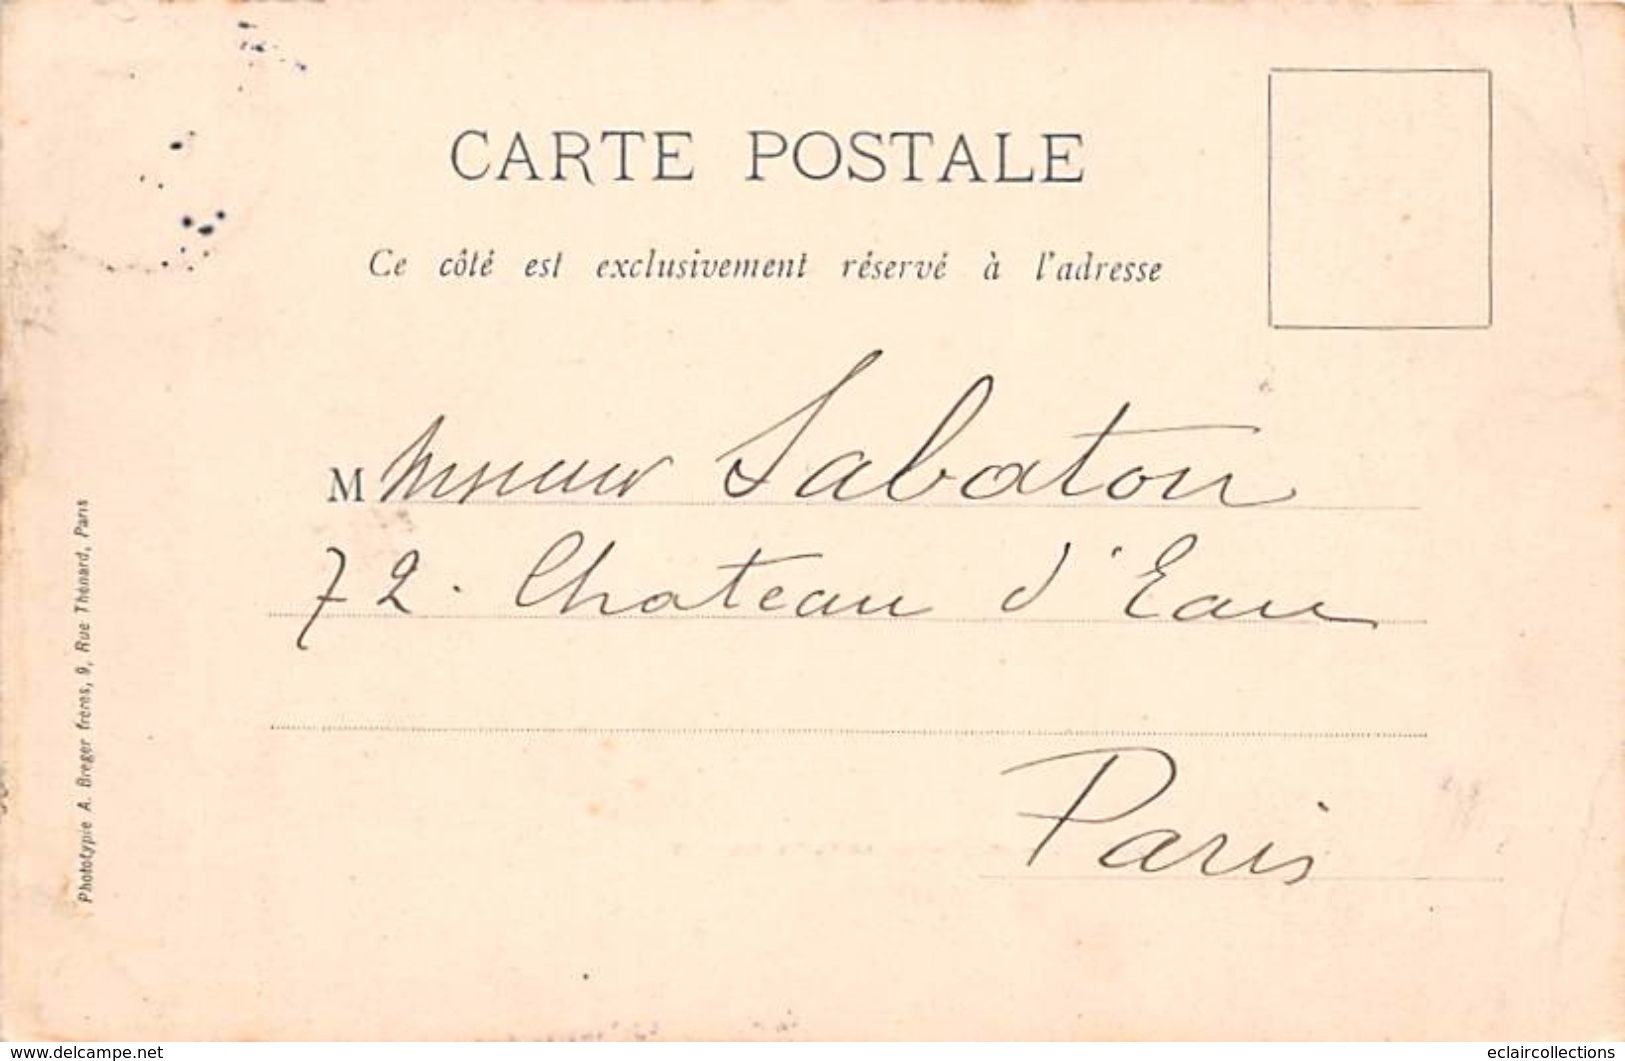 CARTE POSTALE
Ce côté est exclusivement réservé à l'adresse
M Monsieur Sabatou
72. Chateau d'Eau
Paris
Phototypie A. Breger frères, 9, Rue Thénard, Paris
www.delcampe.net
eclaircollections